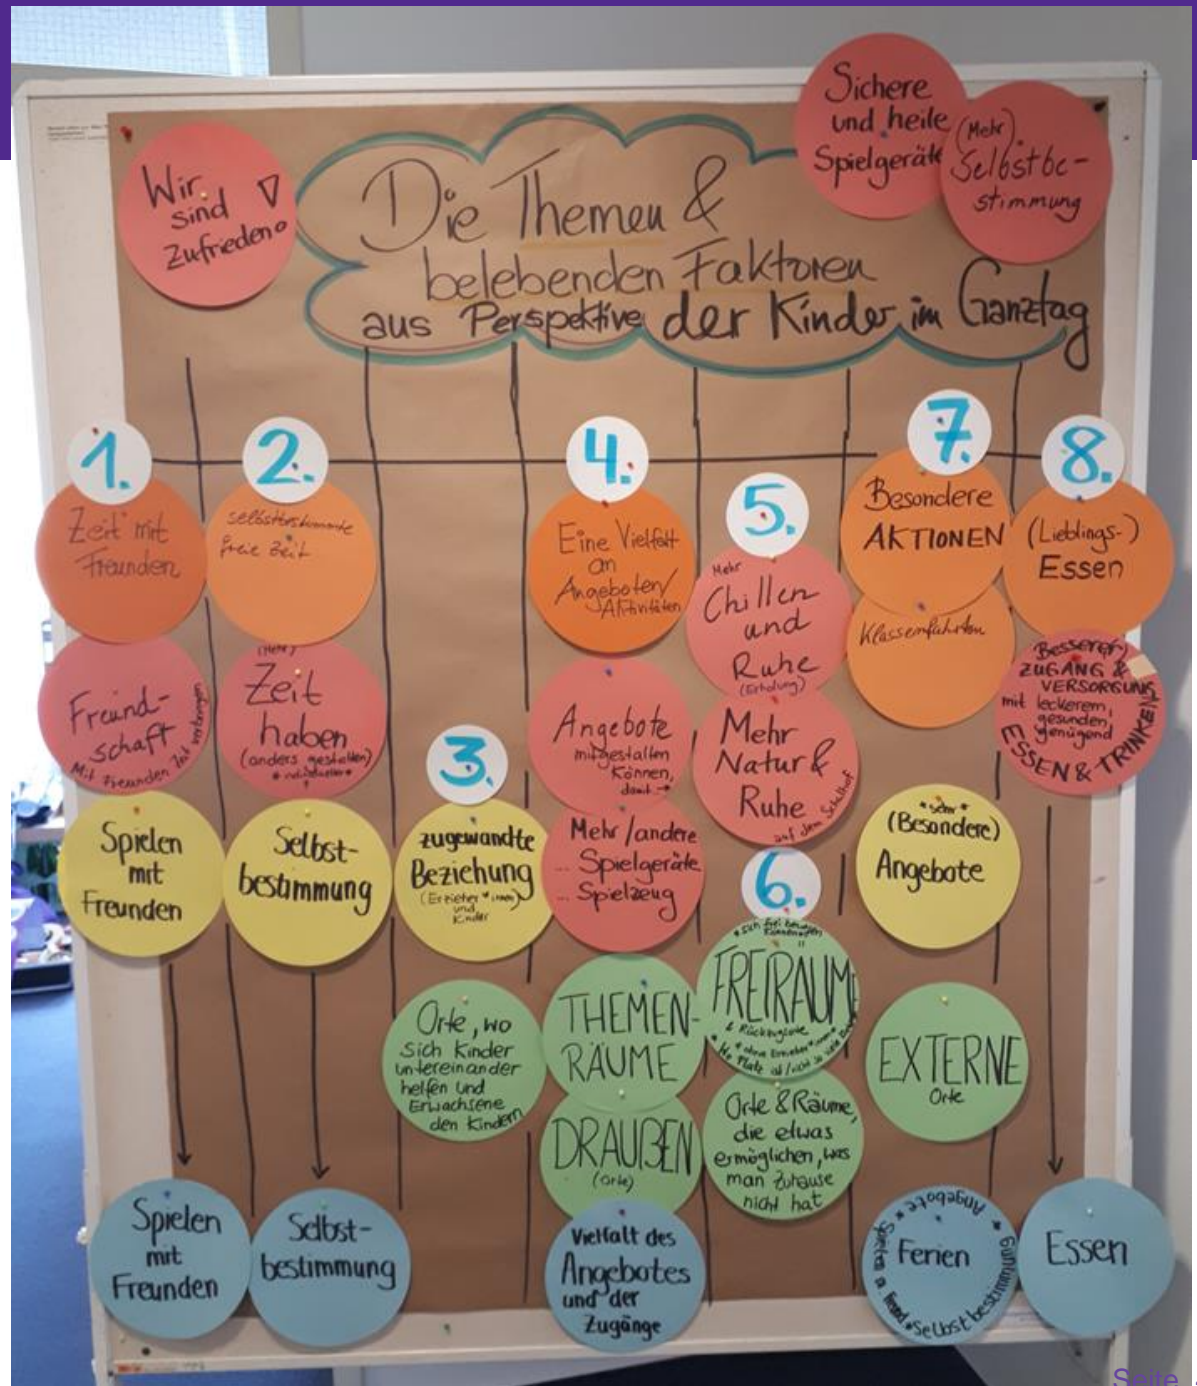 Wir
sind
Zufrieden!
Sichere
und heile
Spielgeräte
(Mehr)
Selbstbe-
stimmung
Die Themen &
belebenden Faktoren
aus Perspektive der Kinder im Ganztag
1.
Zeit mit
Freunden
Freund-
schaft
Mit Freunden Zeit verbringen
Spielen
mit
Freunden
Spielen
mit
Freunden
2.
selbstbestimmte
freie Zeit
(Mehr)
Zeit
haben
(anders gestalten)
Selbst-
bestimmung
Selbst-
bestimmung
3.
zugewandte
Beziehung
(Erzieher*innen)
und
Kinder
Orte, wo
sich Kinder
untereinander
helfen und
Erwachsene
den Kindern
4.
Eine Vielfalt
an
Angeboten/
Aktivitäten
Angebote
mitgestalten
können,
damit →
Mehr/andere
... Spielgeräte
... Spielzeug
THEMEN-
RÄUME
DRAUßEN
(Orte)
Vielfalt des
Angebotes
und der
Zugänge
5.
Mehr
Chillen
und
Ruhe
(Erholung)
Mehr
Natur &
Ruhe
auf dem Schulhof
6.
*sich frei bewegen
können*
FREIRÄUME
& Rückzugsorte
*ohne Erzieher*innen*
Orte & Räume,
die etwas
ermöglichen, was
man zuhause
nicht hat
7.
Besondere
AKTIONEN
Klassenfahrten
(Besondere)
Angebote
EXTERNE
Orte
Ferien
* Angebote *
Selbstbestimmung
Spielen
8.
(Lieblings-)
Essen
Besserer
ZUGANG &
VERSORGUNG
mit leckerem,
gesunden,
genügend
ESSEN & TRINKEN
Essen
Seite